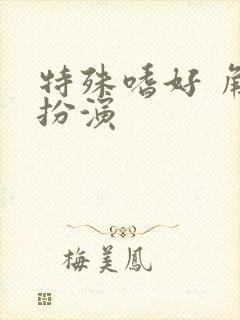 特殊嗜好 角
扮演
梅美鳳